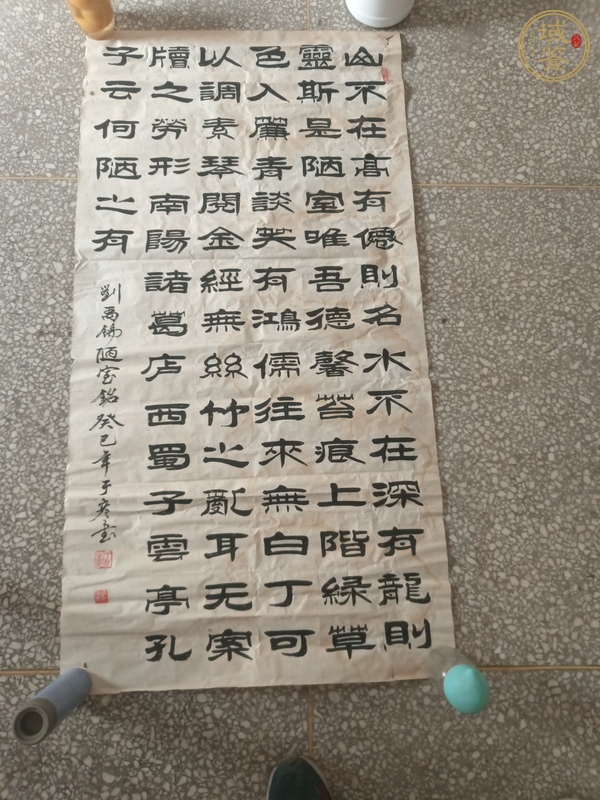 山不在高有僊則名水不在深有龍則
靈斯是陋室唯吾德馨苔痕上階緑草
色入簾青談笑有鴻儒往來無白丁可
以調素琴閱金經無絲竹之亂耳无案
牘之勞形南陽諸葛庐西蜀子雲亭孔
子云何陋之有
劉禹锡陋室銘癸巳年于彦书